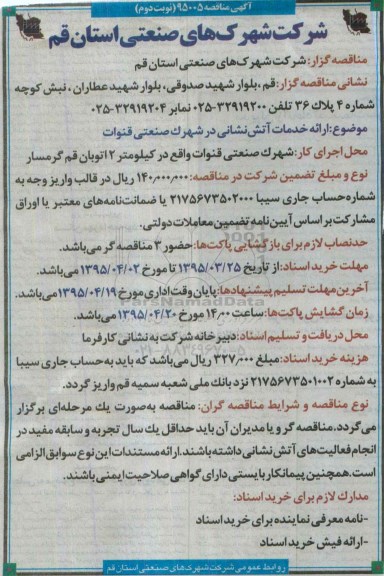 آگهی مناقصه ۹۵۰۰۵ (نوبت دوم)
شرکت شهرک‌های صنعتی استان قم
مناقصه گزار: شرکت شهرک‌های صنعتی استان قم
نشانی مناقصه گزار: قم ،بلوار شهید صدوقی، بلوار شهید عطاران ، نبش کوچه
شماره ۴ پلاک ۳۶ تلفن ۳۲۹۱۹۲۰۰-۰۲۵ نمابر ۳۲۹۱۹۲۰۴-۰۲۵
موضوع: ارائه خدمات آتش‌نشانی در شهرک صنعتی قنوات
محل اجرای کار: شهرک صنعتی قنوات واقع در کیلومتر ۱۲ اتوبان قم گرمسار
نوع و مبلغ تضمین شرکت در مناقصه: ۱۴۰,۰۰۰,۰۰۰ ریال در قالب واریز وجه به
شماره حساب جاری سیبا ۲۱۷۵۶۷۳۵۰۲۰۰۰ یا ضمانت‌نامه‌های معتبر یا اوراق
مشارکت بر اساس آیین‌نامه تضمین معاملات دولتی.
حدنصاب لازم برای بازگشایی پاکت‌ها: حضور ۳ مناقصه گر می‌باشد.
مهلت خرید اسناد: از تاریخ ۱۳۹۵/۰۳/۲۵ تا مورخ ۱۳۹۵/۰۴/۰۲ می‌باشد.
آخرین مهلت تسلیم پیشنهادها: پایان وقت اداری مورخ ۱۳۹۵/۰۴/۱۹ می‌باشد.
زمان گشایش پاکت‌ها: ساعت ۱۴,۰۰ مورخ ۱۳۹۵/۰۴/۲۰ می‌باشد.
محل دریافت و تسلیم اسناد: دبیرخانه شرکت به نشانی کارفرما
هزینه خرید اسناد: مبلغ ۳۲۷,۰۰۰ ریال می‌باشد که باید به حساب جاری سیبا
به شماره ۲۱۷۵۶۷۳۵۰۱۰۰۲ نزد بانک ملی شعبه سمیه قم واریز گردد.
نوع مناقصه و شرایط مناقصه گران: مناقصه به‌صورت یک مرحله‌ای برگزار
می‌گردد.مناقصه گر و یا مدیران آن باید حداقل یک سال تجربه و سابقه مفید در
انجام فعالیت‌های آتش نشانی داشته باشند.ارائه مستندات این نوع سوابق الزامی
است.همچنین پیمانکار بایستی دارای گواهی صلاحیت ایمنی باشند.
مدارک لازم برای خرید اسناد:
-نامه معرفی نماینده برای خرید اسناد
-ارائه فیش خرید اسناد
روابط عمومی شرکت شهرک‌های صنعتی استان قم